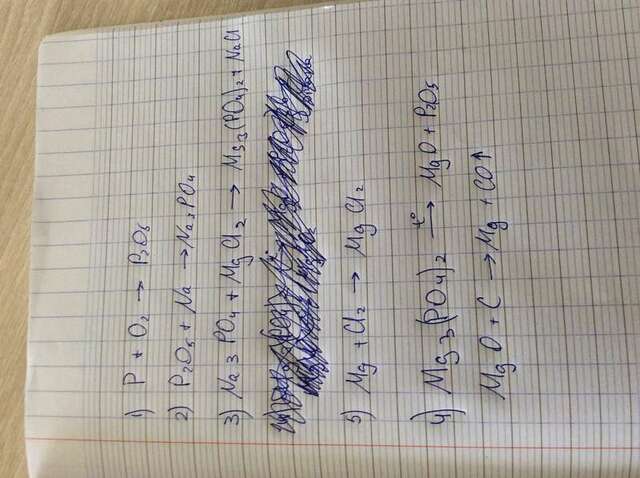 1) P + O₂ → P₂O₅
2) P₂O₅ + Na → Na₃PO₄
3) Na3 PO₄ + MgCl₂ → Mg₃(PO₄)₂ + NaCl
5) Mg + Cl₂ → MgCl₂
4) Mg₃(PO₄)₂ t° → MgO + P₂O₅
MgO + C → Mg + CO↑